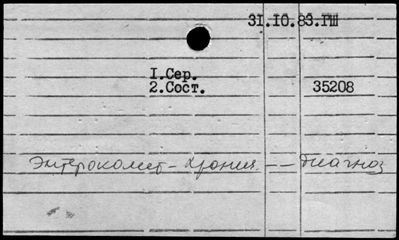 31.10.83.ГШ
1.Сер.
2.Сост. 35208
Энтероколит - хронич. -- диагноз